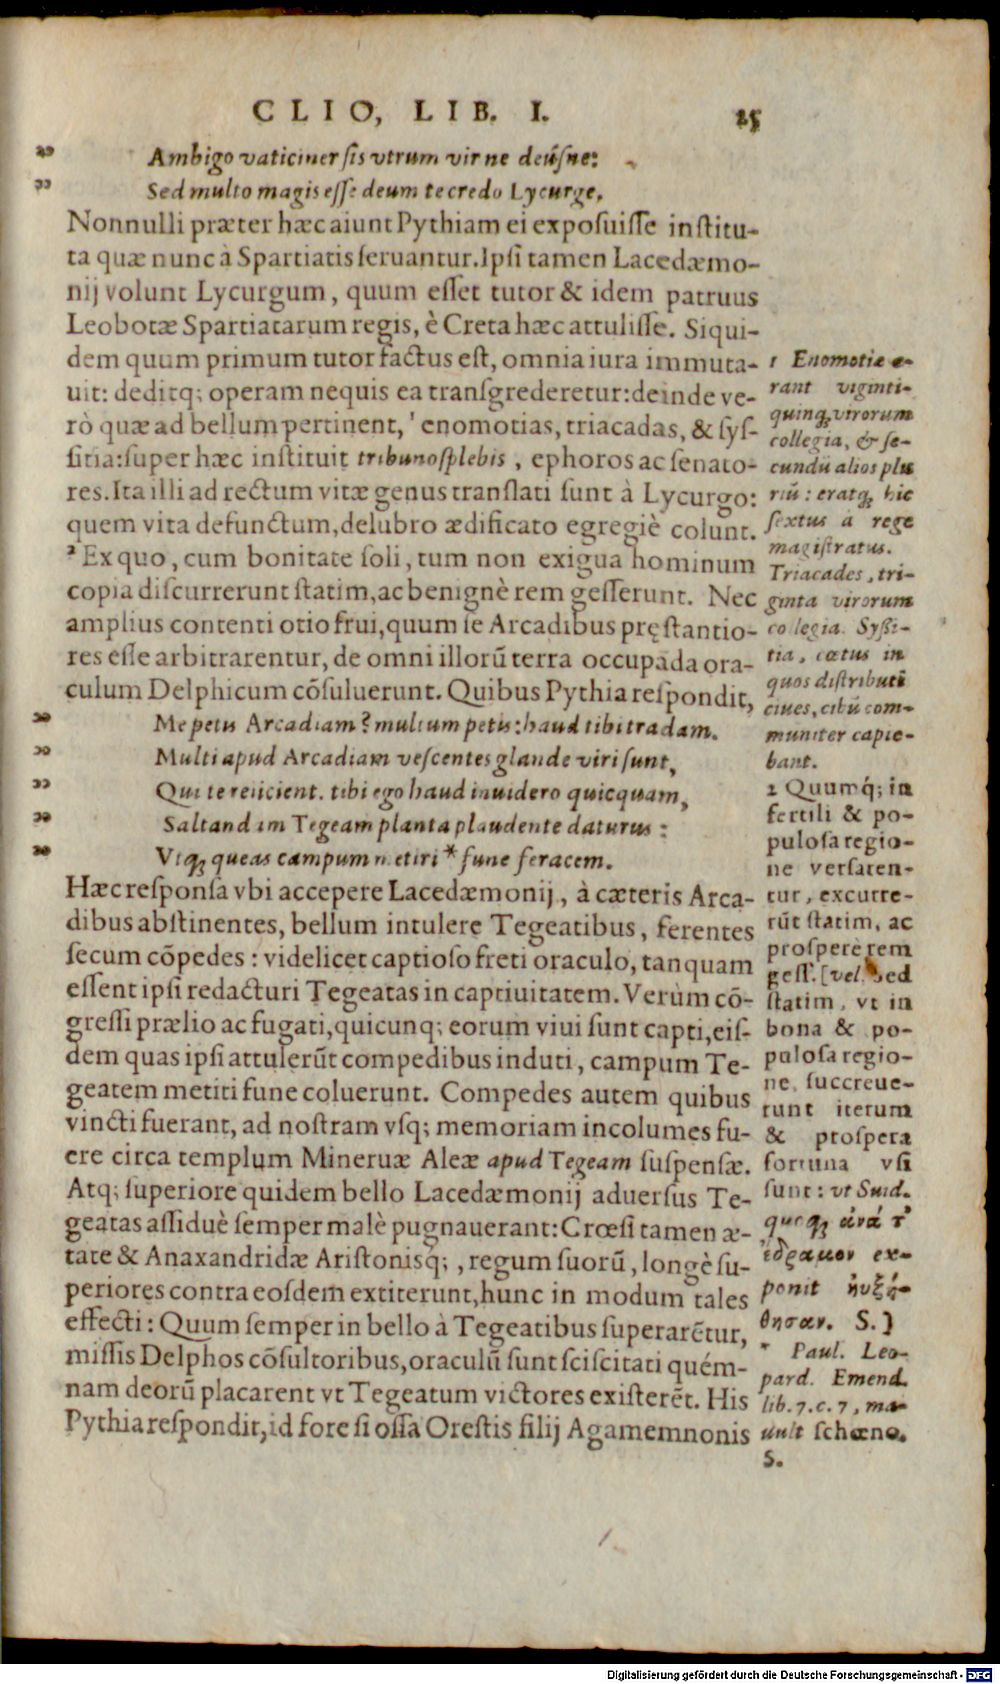 CLIO, LIB. I. 25
„ Ambigo vaticiner sis vtrum vir ne deúsne:
„ Sed multo magis esse deum te credo Lycurge,
Nonnulli præter hæc aiunt Pythiam ei exposuisse institu-
ta quæ nunc à Spartiatis seruantur. Ipsi tamen Lacedæmo-
nij volunt Lycurgum, quum esset tutor & idem patruus
Leobotæ Spartiatarum regis, è Creta hæc attulisse. Siqui-
dem quum primum tutor factus est, omnia iura immuta-
uit: deditq; operam nequis ea transgrederetur: deinde ve-
rò quæ ad bellum pertinent, ¹ enomotias, triacadas, & sys-
sitia: super hæc instituit tribunos plebis, ephoros ac senato-
res. Ita illi ad rectum vitæ genus translati sunt à Lycurgo:
quem vita defunctum, delubro ædificato egregiè colunt.
² Ex quo, cum bonitate soli, tum non exigua hominum
copia discurrerunt statim, ac benignè rem gesserunt. Nec
amplius contenti otio frui, quum se Arcadibus pręstantio-
res esse arbitrarentur, de omni illorū terra occupada ora-
culum Delphicum cōsuluerunt. Quibus Pythia respondit,
„ Me petis Arcadiam? multum petis: haud tibi tradam.
„ Multi apud Arcadiam vescentes glande viri sunt,
„ Qui te reiicient. tibi ego haud inuidero quicquam,
„ Saltandam Tegeam planta plaudente daturus:
„ Vtq; queas campum metiri * fune feracem.
Hæc responsa vbi accepere Lacedæmonij, à cæteris Arca-
dibus abstinentes, bellum intulere Tegeatibus, ferentes
secum cōpedes: videlicet captioso freti oraculo, tanquam
essent ipsi redacturi Tegeatas in captiuitatem. Verùm cō-
gressi prælio ac fugati, quicunq; eorum viui sunt capti, eis-
dem quas ipsi attulerūt compedibus induti, campum Te-
geatem metiti fune coluerunt. Compedes autem quibus
vincti fuerant, ad nostram vsq; memoriam incolumes fu-
ere circa templum Mineruæ Aleæ apud Tegeam suspensæ.
Atq; superiore quidem bello Lacedæmonij aduersus Te-
geatas assiduè semper malè pugnauerant: Crœsi tamen æ-
tate & Anaxandridæ Aristonisq́;, regum suorū, longè su-
periores contra eosdem extiterunt, hunc in modum tales
effecti: Quum semper in bello à Tegeatibus superarētur,
missis Delphos cōsultoribus, oraculū sunt sciscitati quém-
nam deorū placarent vt Tegeatum victores existerēt. His
Pythia respondit, id fore si ossa Orestis filij Agamemnonis
1 Enomotiæ e-
rant viginti-
quinq; virorum
collegia, & se-
cundū alios plu
riū: eratq; hic
sextus a rege
magistratus.
Triacades, tri-
ginta virorum
collegia. Syssi-
tia, cœtus in
quos distributi
ciues, cibū com-
muniter capie-
bant.
2 Quumq́; in
fertili & po-
pulosa regio-
ne versaren-
tur, excurre-
rūt statim, ac
prosperè rem
gess. [vel, Sed
statim, vt in
bona & po-
pulosa regio-
ne, succreue-
runt iterum
& prospera
fortuna vsi
sunt: vt Suid.
quoq; ἀνά τ'
ἔδραμον ex-
ponit ηὐξή-
θησαν. S.]
* Paul. Leo-
pard. Emend.
lib. 7. c. 7, ma-
uult schœno.
S.
Digitalisierung gefördert durch die Deutsche Forschungsgemeinschaft - DFG